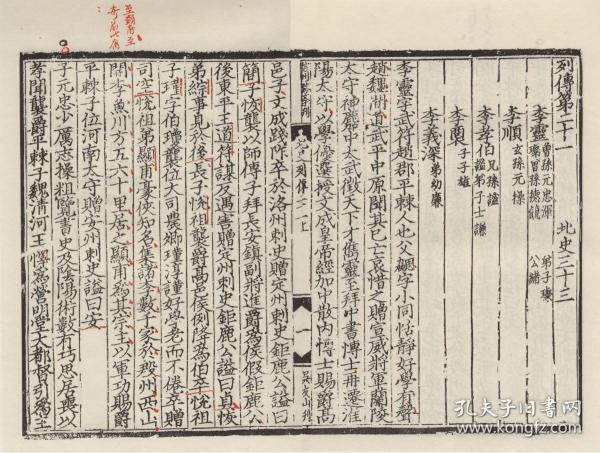 列傳第二十一
北史三十三
李靈 曾孫元忠 渾 弟子璨
璨曾孫德饒 公緒
李順 玄孫元操
李孝伯 兄孫謐
謐弟子士謙
李裔 子子雄
李義深 弟幼廉
李靈字武符趙郡平棘人也父勰字小同恬靜好學有聲
趙魏間道武平中原聞其已亡哀惜之贈宣威將軍蘭陵
太守神䴥中太武徵天下才儁靈至拜中書博士再遷淮
陽太守以學優選授文成皇帝經加中散內博士賜爵高
邑子文成踐阼卒於洛州刺史贈定州刺史鉅鹿公諡曰
簡子恢襲以師傅子拜長安鎮副將進爵為侯假鉅鹿公
後東平王道符謀反遇害贈定州刺史鉅鹿公諡曰貞恢
弟綜事見於後長子悅祖襲爵高邑侯例降為伯卒悅祖
子瑾字伯瓊襲位大司農卿瑾淳謹好學老而不倦卒贈
司空悅祖弟顯甫豪俠知名集諸李數千家於殷州西山
開李魚川方五六十里居之顯甫為其宗主以軍功賜爵
平棘子位河南太守贈安州刺史諡曰安
子元忠少厲志操粗覽書史及陰陽術數有巧思居喪以
孝聞襲爵平棘子魏清河王懌為營明堂大都督引為主
孔夫子旧书网
kongfz.com